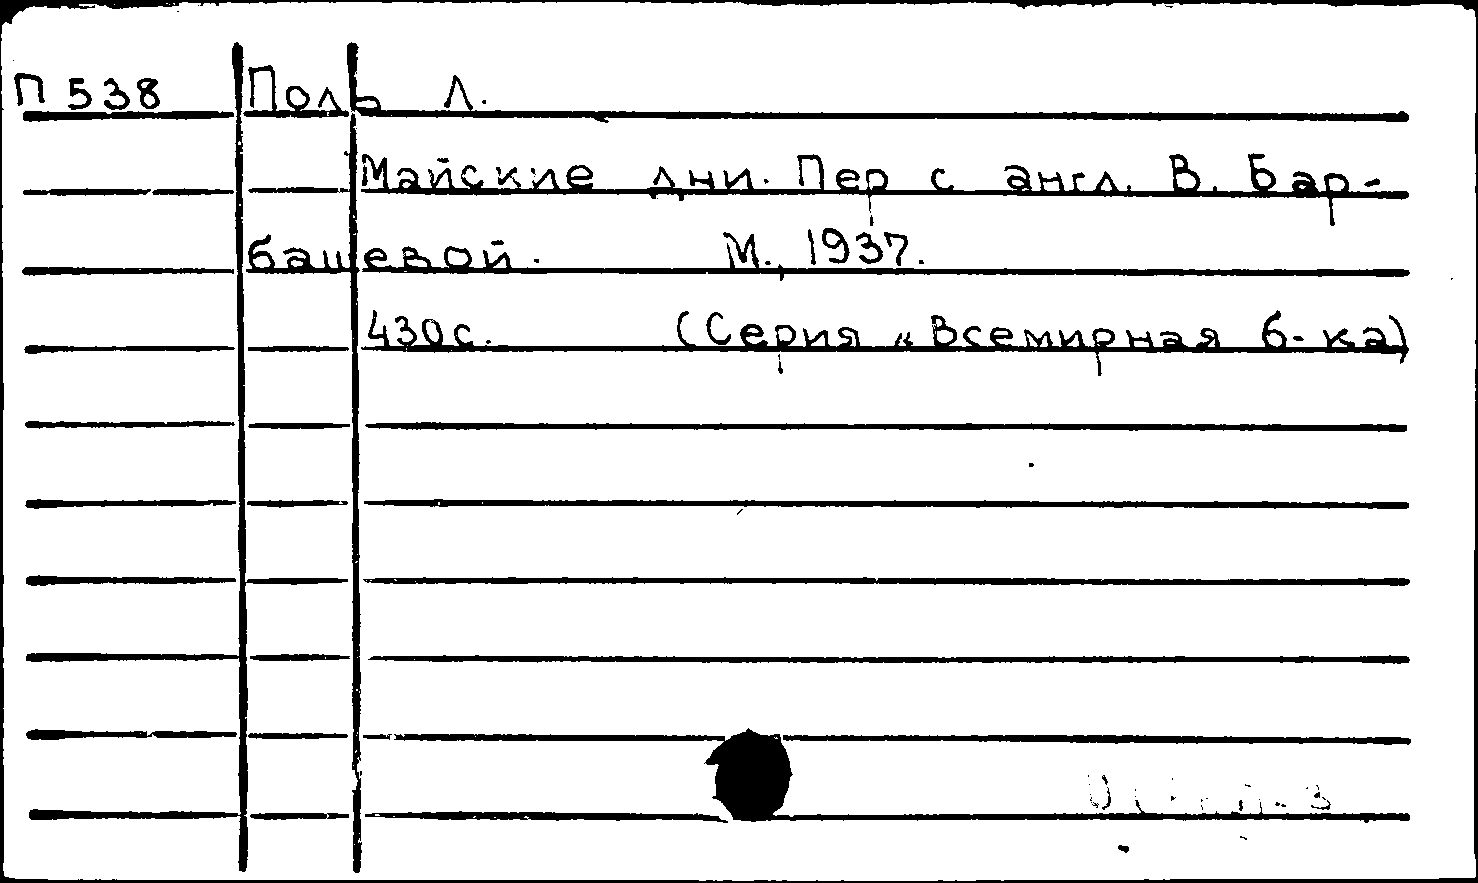 П 538 Поль Л.
Майские дни. Пер с англ. В. Бар-
башевой. М., 1937.
430с. (Серия „Всемирная б-ка)